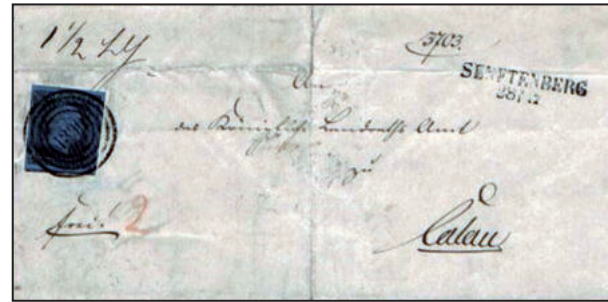 1 1/2 Lth
3703.
SENFTENBERG
28/12
An
das Königliche Landraths Amt
zu
Calau
frei. 2